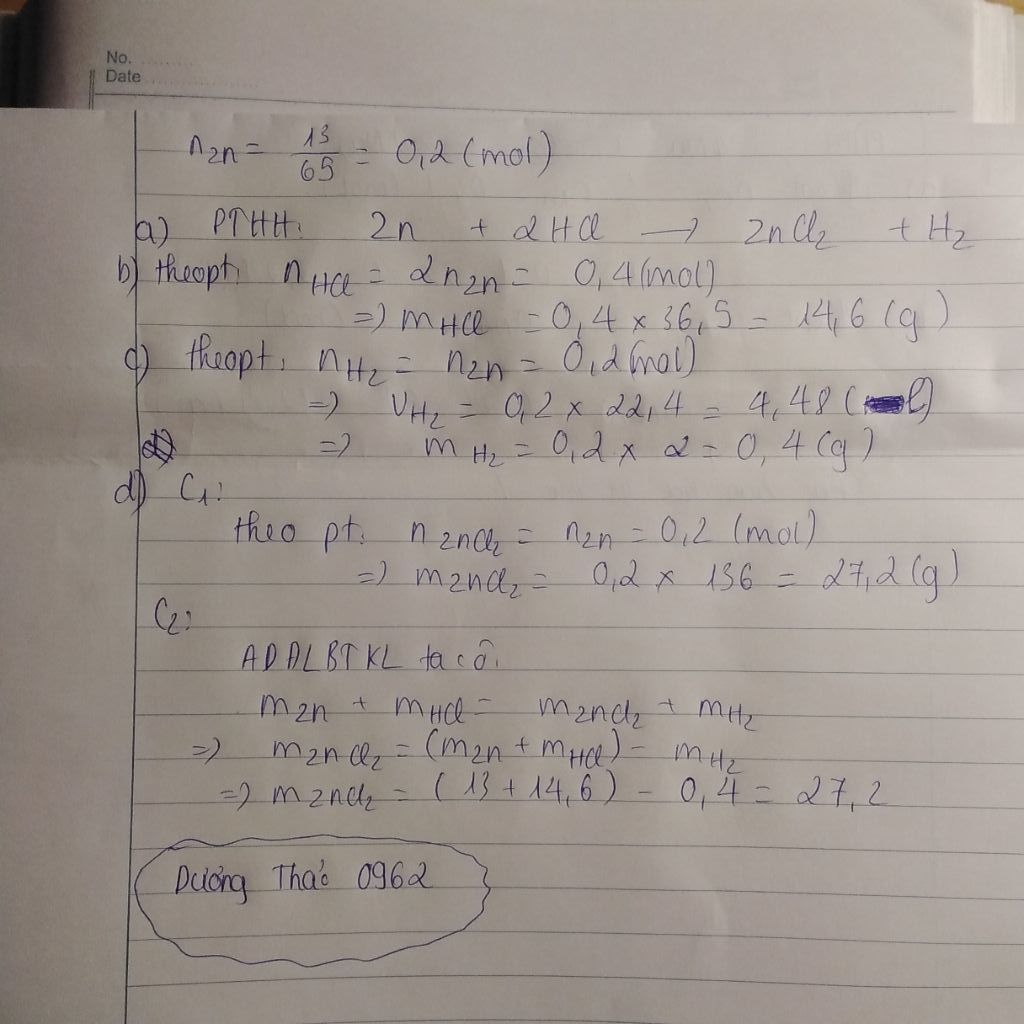 No.
Date
n2n = 13/65 = 0,2 (mol)
a) PTHH: 2n + 2HCl → 2nCl2 + H2
b) theo pt: nHCl = 2n2n = 0,4 (mol)
=) mHCl = 0,4 × 36,5 = 14,6 (g)
c) theo pt: nH2 = n2n = 0,2 (mol)
=) VH2 = 0,2 × 22,4 = 4,48 (l)
=) mH2 = 0,2 × 2 = 0,4 (g)
d) C1:
theo pt: n2nCl2 = n2n = 0,2 (mol)
=) m2nCl2 = 0,2 × 136 = 27,2 (g)
C2:
ADĐLBTKL ta có:
m2n + mHCl = m2nCl2 + mH2
=) m2nCl2 = (m2n + mHCl) - mH2
=) m2nCl2 = (13 + 14,6) - 0,4 = 27,2
Dương Thảo 0962